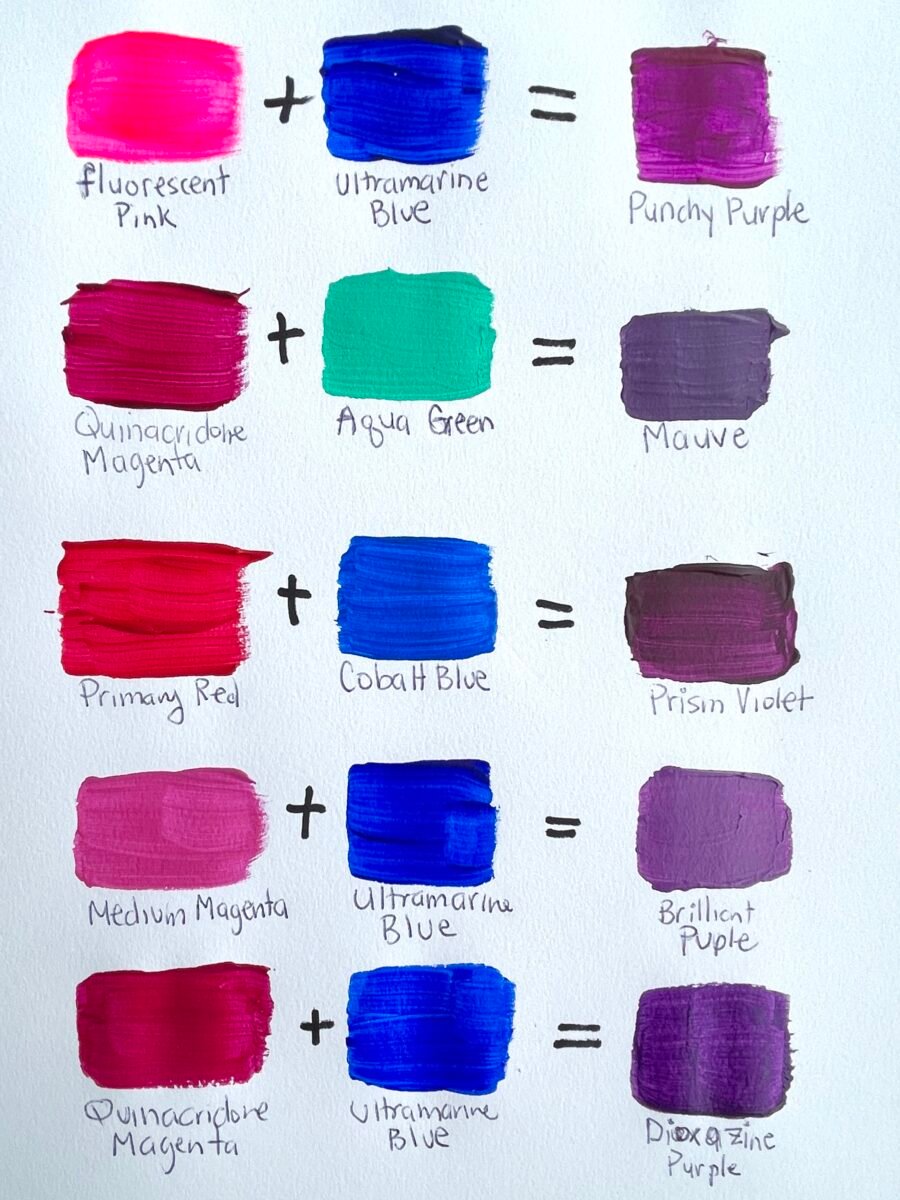 +
=
fluorescent
Pink
Ultramarine
Blue
Punchy Purple
+
=
Quinacridone
Magenta
Aqua Green
Mauve
+
=
Primary Red
Cobalt Blue
Prism Violet
+
=
Medium Magenta
Ultramarine
Blue
Brilliant
Puple
+
=
Quinacridone
Magenta
Ultramarine
Blue
Dioxazine
Purple